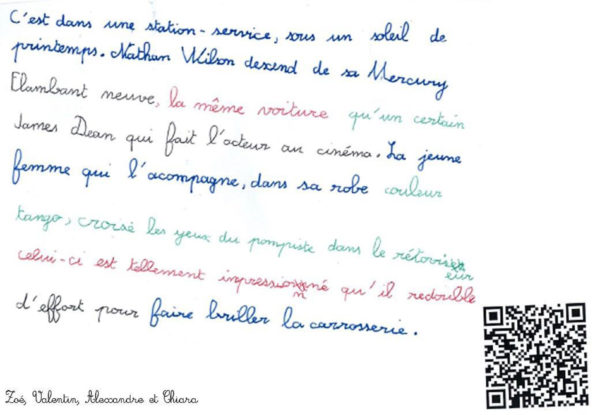 C'est dans une station-service, sous un soleil de
printemps. Nathan Wilson descend de sa Mercury
Flambant neuve, la même voiture qu'un certain
James Dean qui fait l'acteur au cinéma. La jeune
femme qui l'acompagne, dans sa robe couleur
tango, croisé les yeux du pompiste dans le rétoviseur
celui-ci est tellement impressionné qu'il redouble
d'effort pour faire briller la carrosserie.
Zoé, Valentin, Alexandre et Chiara